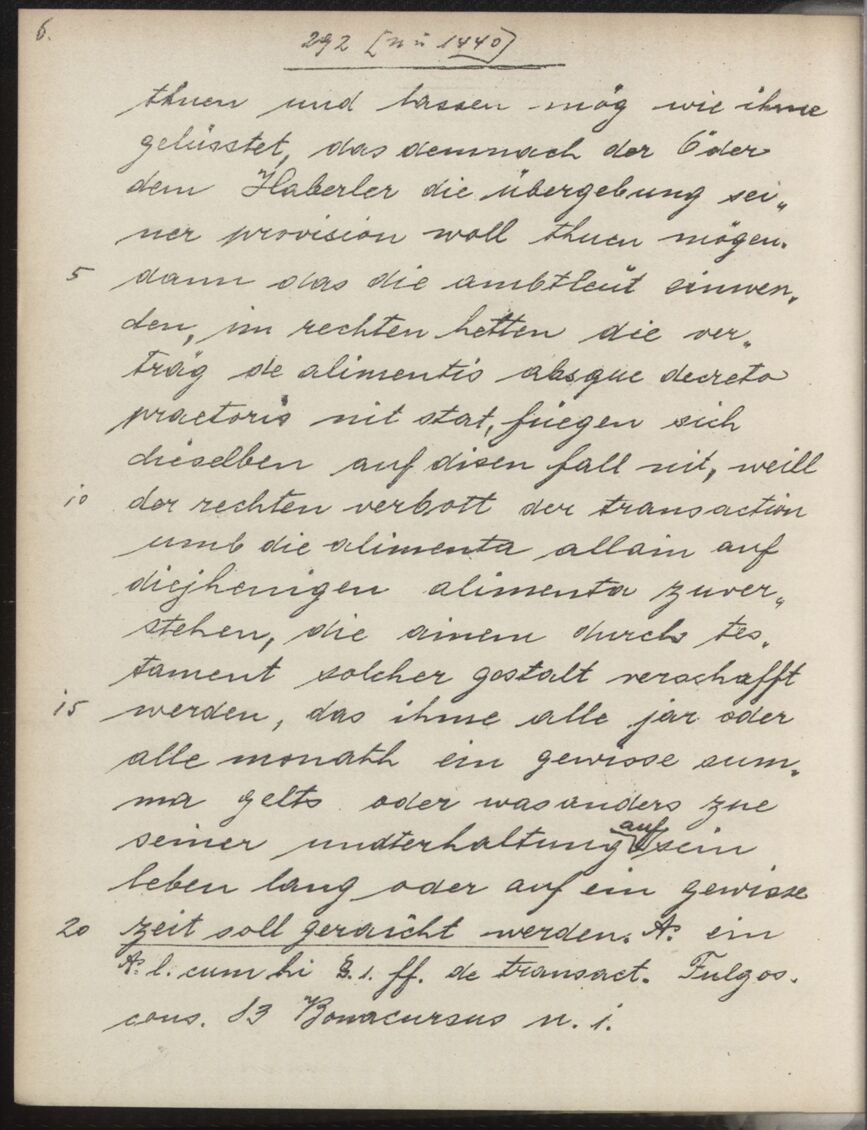 6.
292 [nü 1440]
thuen und lassen mög wie ihme
gelüsstet, das demnach der Öder
dem Haberler die übergebung sei„
ner provision woll thuen mögen.
5 dann das die ambtleüt einwen„
den, im rechten hetten die ver„
träg de alimentis absque decreto
praetoris nit stat, füegen sich
dieselben auf disen fall nit, weill
10 der rechten verbott der transaction
umb die alimenta allain auf
diejhenigen alimenta zuver„
stehen, die ainem durch tes„
tament solcher gestalt verschafft
15 werden, das ihme alle jar oder
alle monath ein gewisse sum„
ma gelts oder was anders zue
seiner undterhaltung auf sein
leben lang oder auf ein gewisse
20 zeit soll geraicht werden. A. ein
A. l. cum hi §. 1. ff. de transact. Fulgos.
cons. 83 Bonacursus n. 1.